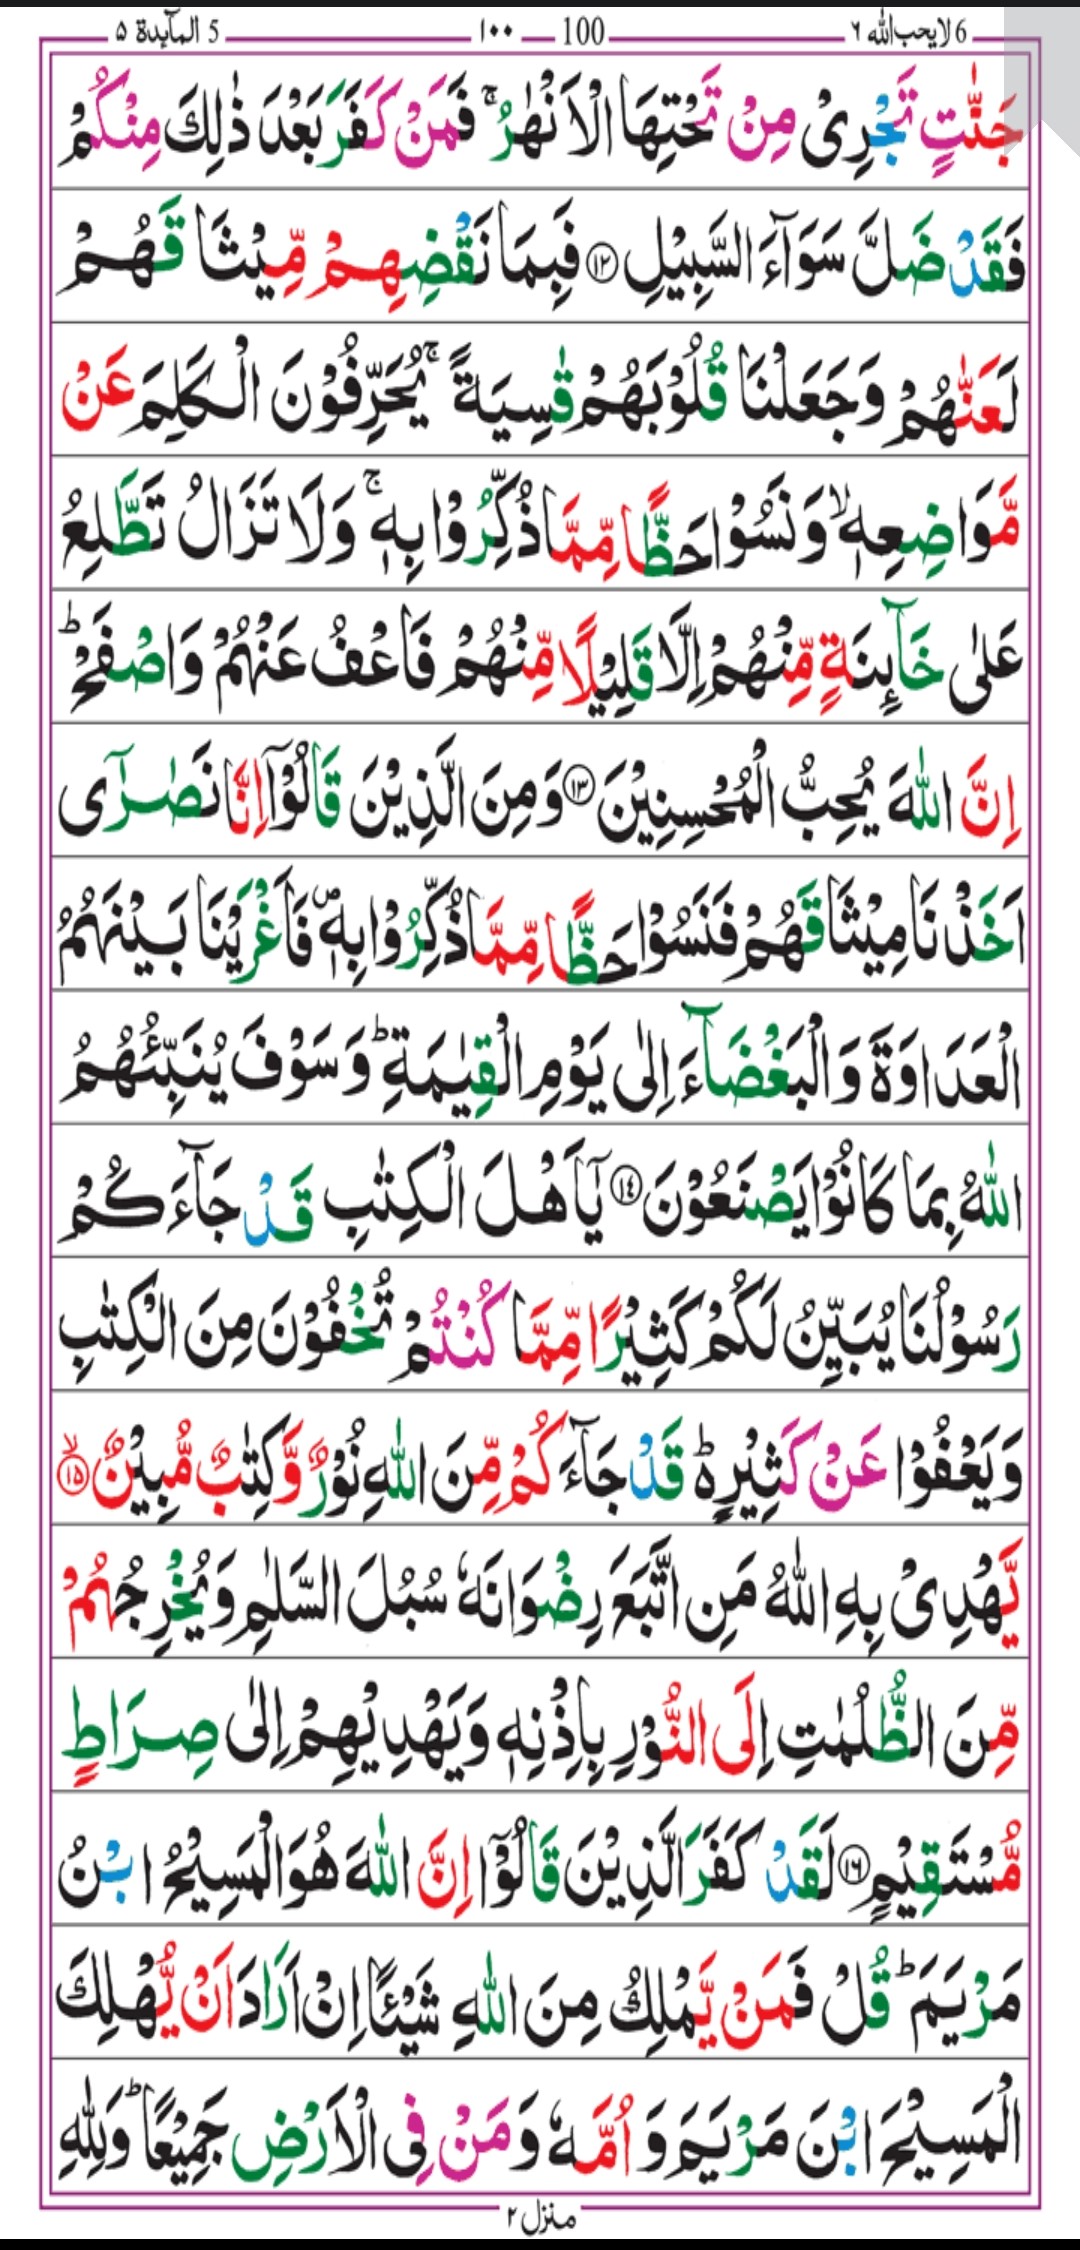 6 لا يحب الله ٦ 100 ١٠٠ 5 المآىِٕدة ۵
جَنّٰتٍ تَجْرِیْ مِنْ تَحْتِهَا الْاَنْهٰرُ ۚ فَمَنْ كَفَرَ بَعْدَ ذٰلِكَ مِنْكُمْ
فَقَدْ ضَلَّ سَوَآءَ السَّبِیْلِ ۝۱۲ فَبِمَا نَقْضِهِمْ مِّیْثَاقَهُمْ
لَعَنّٰهُمْ وَجَعَلْنَا قُلُوْبَهُمْ قٰسِیَةً ۚ یُحَرِّفُوْنَ الْكَلِمَ عَنْ
مَّوَاضِعِهٖ ۙ وَنَسُوْا حَظًّا مِّمَّا ذُكِّرُوْا بِهٖ ۚ وَلَا تَزَالُ تَطَّلِعُ
عَلٰی خَآىِٕنَةٍ مِّنْهُمْ اِلَّا قَلِیْلًا مِّنْهُمْ فَاعْفُ عَنْهُمْ وَاصْفَحْ ؕ
اِنَّ اللّٰهَ یُحِبُّ الْمُحْسِنِیْنَ ۝۱۳ وَمِنَ الَّذِیْنَ قَالُوْۤا اِنَّا نَصٰرٰۤی
اَخَذْنَا مِیْثَاقَهُمْ فَنَسُوْا حَظًّا مِّمَّا ذُكِّرُوْا بِهٖ ۪ فَاَغْرَیْنَا بَیْنَهُمُ
الْعَدَاوَةَ وَالْبَغْضَآءَ اِلٰی یَوْمِ الْقِیٰمَةِ ؕ وَسَوْفَ یُنَبِّئُهُمُ
اللّٰهُ بِمَا كَانُوْا یَصْنَعُوْنَ ۝۱۴ یٰۤاَهْلَ الْكِتٰبِ قَدْ جَآءَكُمْ
رَسُوْلُنَا یُبَیِّنُ لَكُمْ كَثِیْرًا مِّمَّا كُنْتُمْ تُخْفُوْنَ مِنَ الْكِتٰبِ
وَیَعْفُوْا عَنْ كَثِیْرٍ ؕ۬ قَدْ جَآءَكُمْ مِّنَ اللّٰهِ نُوْرٌ وَّكِتٰبٌ مُّبِیْنٌ ۝۱۵ۙ
یَّهْدِیْ بِهِ اللّٰهُ مَنِ اتَّبَعَ رِضْوَانَهٗ سُبُلَ السَّلٰمِ وَیُخْرِجُهُمْ
مِّنَ الظُّلُمٰتِ اِلَی النُّوْرِ بِاِذْنِهٖ وَیَهْدِیْهِمْ اِلٰی صِرَاطٍ
مُّسْتَقِیْمٍ ۝۱۶ لَقَدْ كَفَرَ الَّذِیْنَ قَالُوْۤا اِنَّ اللّٰهَ هُوَ الْمَسِیْحُ ابْنُ
مَرْیَمَ ؕ قُلْ فَمَنْ یَّمْلِكُ مِنَ اللّٰهِ شَیْـًٔا اِنْ اَرَادَ اَنْ یُّهْلِكَ
الْمَسِیْحَ ابْنَ مَرْیَمَ وَاُمَّهٗ وَمَنْ فِی الْاَرْضِ جَمِیْعًا ؕ وَلِلّٰهِ
منزل ۲